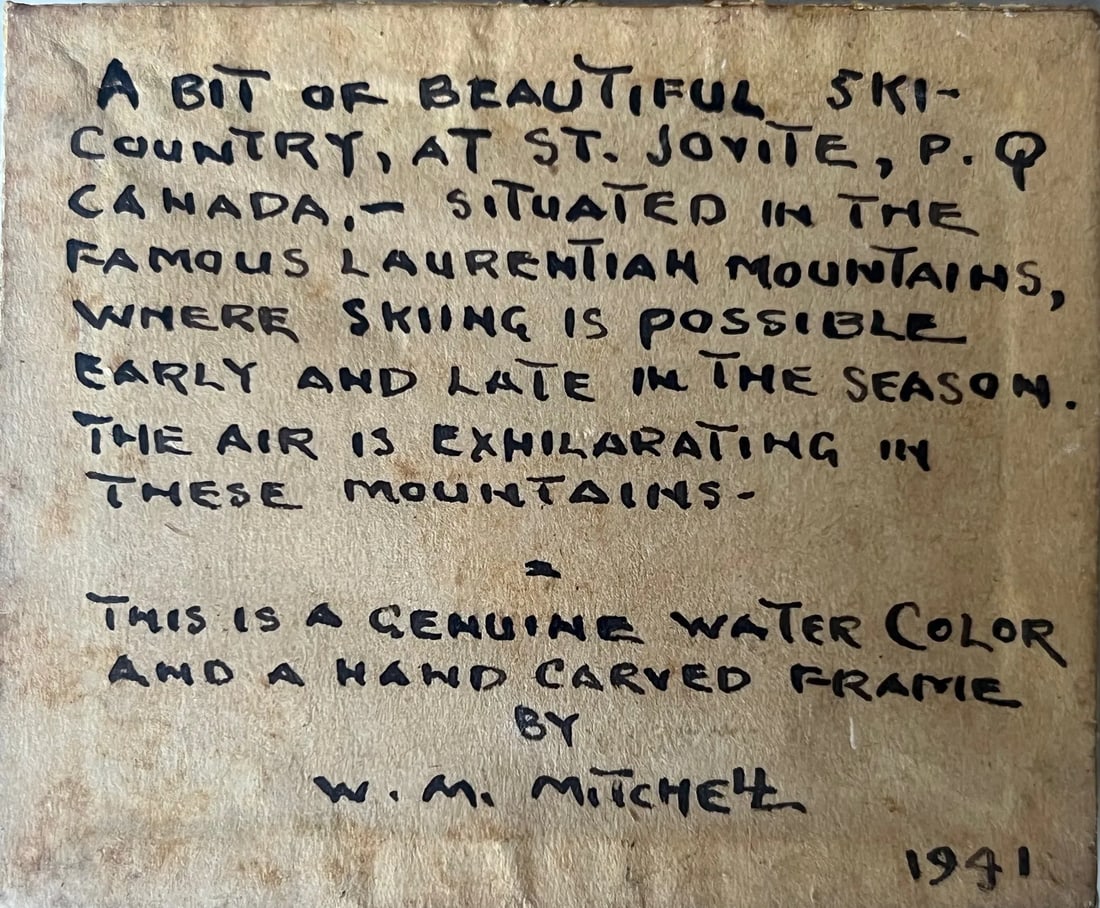 A BIT OF BEAUTIFUL SKI-
COUNTRY, AT ST. JOVITE, P. Q
CANADA,- SITUATED IN THE
FAMOUS LAURENTIAN MOUNTAINS,
WHERE SKIING IS POSSIBLE
EARLY AND LATE IN THE SEASON.
THE AIR IS EXHILARATING IN
THESE MOUNTAINS-
THIS IS A GENUINE WATER COLOR
AND A HAND CARVED FRAME
BY
W. M. MITCHELL
1941